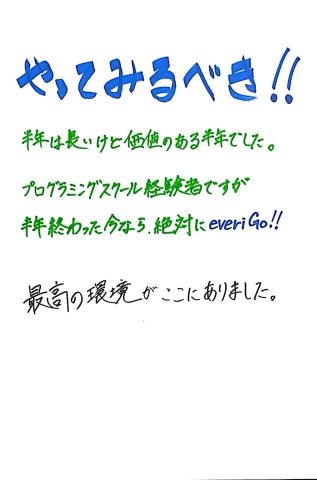 やってみるべき!!
半年は長いけど価値のある半年でした。
プログラミングスクール経験者ですが
半年終わった今なら、絶対にeveriGo!!
最高の環境がここにありました。